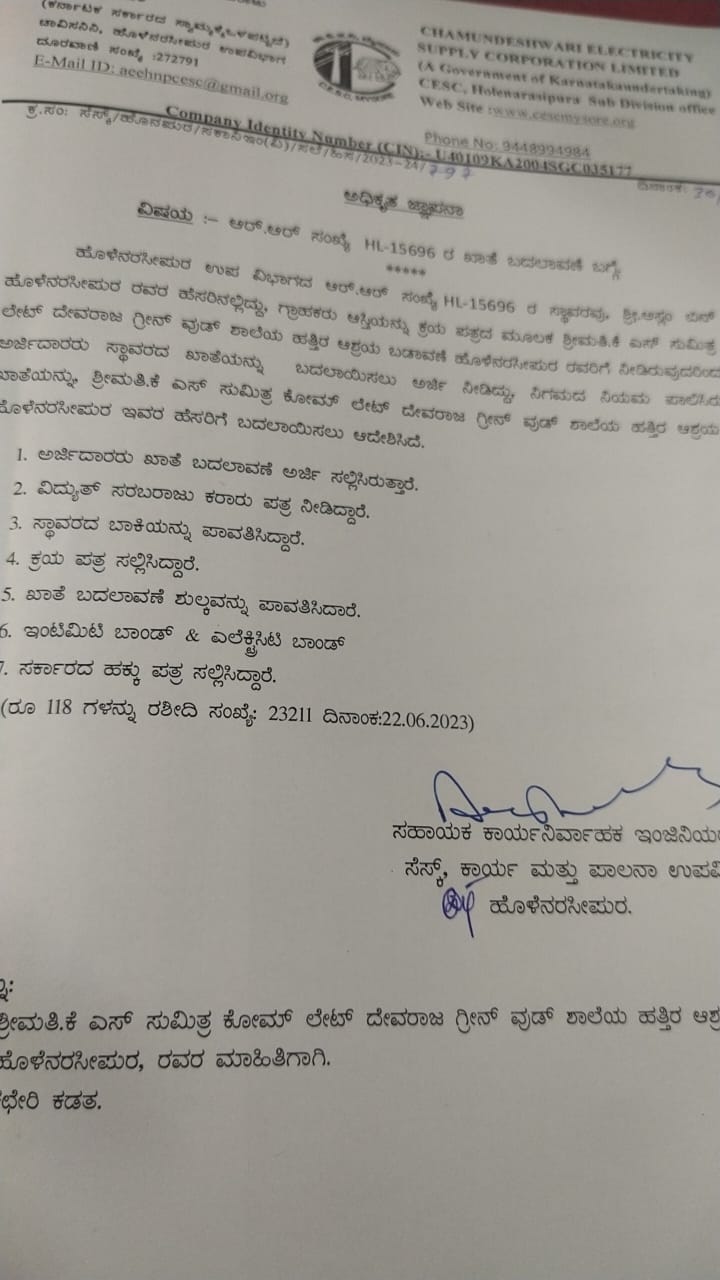 (ಕರ್ನಾಟಕ ಸರ್ಕಾರದ ಸ್ವಾಮ್ಯಕ್ಕೊಳಪಟ್ಟಿದೆ)
ಚಾವಿಸನಿನಿ, ಹೊಳೆನರಸೀಪುರ ಉಪವಿಭಾಗ
ದೂರವಾಣಿ ಸಂಖ್ಯೆ :272791
E-Mail ID: aeehnpcesc@gmail.org
CHAMUNDESHWARI ELECTRICITY
SUPPLY CORPORATION LIMITED
(A Government of Karnatakaundertaking)
CESC, Holenarasipura Sub Division office
Web Site :www.cescmysore.org
C.E.S.C, MYSORE
Phone No: 9448994984
Company Identity Number (CIN):- U40109KA2004SGC035177
ಕ್ರ.ಸಂ: ಸೆಸ್ಕ್/ಹೊನಪುರ/ಸಕಾನಿಇಂ(ವಿ)/ಸಲೆ/ಹಿಸ/2023-24/797
ದಿನಾಂಕ:
ಅಧಿಕೃತ ಜ್ಞಾಪನಾ
ವಿಷಯ :– ಆರ್.ಆರ್ ಸಂಖ್ಯೆ HL-15696 ರ ಖಾತೆ ಬದಲಾವಣೆ ಬಗ್ಗೆ
*****
ಹೊಳೆನರಸೀಪುರ ಉಪ ವಿಭಾಗದ ಆರ್.ಆರ್ ಸಂಖ್ಯೆ HL-15696 ರ ಸ್ಥಾವರವು, ಶ್ರೀ.ಅಸ್ಲಂ ಬಿನ್
ಹೊಳೆನರಸೀಪುರ ರವರ ಹೆಸರಿನಲ್ಲಿದ್ದು, ಗ್ರಾಹಕರು ಆಸ್ತಿಯನ್ನು ಕ್ರಯ ಪತ್ರದ ಮೂಲಕ ಶ್ರೀಮತಿ.ಕೆ ಎಸ್ ಸುಮಿತ್ರ
ಲೇಟ್ ದೇವರಾಜ ಗ್ರೀನ್ ವುಡ್ ಶಾಲೆಯ ಹತ್ತಿರ ಆಶ್ರಯ ಬಡಾವಣೆ ಹೊಳೆನರಸೀಪುರ ರವರಿಗೆ ನೀಡಿರುವುದರಿಂದ
ಅರ್ಜಿದಾರರು ಸ್ಥಾವರದ ಖಾತೆಯನ್ನು ಬದಲಾಯಿಸಲು ಅರ್ಜಿ ನೀಡಿದ್ದು, ನಿಗಮದ ನಿಯಮ ಪಾಲಿಸಿ
ಖಾತೆಯನ್ನು, ಶ್ರೀಮತಿ.ಕೆ ಎಸ್ ಸುಮಿತ್ರ ಕೋಮ್ ಲೇಟ್ ದೇವರಾಜ ಗ್ರೀನ್ ವುಡ್ ಶಾಲೆಯ ಹತ್ತಿರ ಆಶ್ರಯ
ಹೊಳೆನರಸೀಪುರ ಇವರ ಹೆಸರಿಗೆ ಬದಲಾಯಿಸಲು ಆದೇಶಿಸಿದೆ.
1. ಅರ್ಜಿದಾರರು ಖಾತೆ ಬದಲಾವಣೆ ಅರ್ಜಿ ಸಲ್ಲಿಸಿರುತ್ತಾರೆ.
2. ವಿದ್ಯುತ್ ಸರಬರಾಜು ಕರಾರು ಪತ್ರ ನೀಡಿದ್ದಾರೆ.
3. ಸ್ಥಾವರದ ಬಾಕಿಯನ್ನು ಪಾವತಿಸಿದ್ದಾರೆ.
4. ಕ್ರಯ ಪತ್ರ ಸಲ್ಲಿಸಿದ್ದಾರೆ.
5. ಖಾತೆ ಬದಲಾವಣೆ ಶುಲ್ಕವನ್ನು ಪಾವತಿಸಿದಾರೆ.
6. ಇಂಟಿಮಿಟಿ ಬಾಂಡ್ & ಎಲೆಕ್ಟ್ರಿಸಿಟಿ ಬಾಂಡ್
7. ಸರ್ಕಾರದ ಹಕ್ಕು ಪತ್ರ ಸಲ್ಲಿಸಿದ್ದಾರೆ.
(ರೂ 118 ಗಳನ್ನು ರಶೀದಿ ಸಂಖ್ಯೆ: 23211 ದಿನಾಂಕ:22.06.2023)
ಸಹಾಯಕ ಕಾರ್ಯನಿರ್ವಾಹಕ ಇಂಜಿನಿಯರ
ಸೆಸ್ಕ್, ಕಾರ್ಯ ಮತ್ತು ಪಾಲನಾ ಉಪವಿ
ಹೊಳೆನರಸೀಪುರ.
ಶ್ರೀಮತಿ.ಕೆ ಎಸ್ ಸುಮಿತ್ರ ಕೋಮ್ ಲೇಟ್ ದೇವರಾಜ ಗ್ರೀನ್ ವುಡ್ ಶಾಲೆಯ ಹತ್ತಿರ ಆಶ್ರ
ಹೊಳೆನರಸೀಪುರ, ರವರ ಮಾಹಿತಿಗಾಗಿ.
ಕಛೇರಿ ಕಡತ.